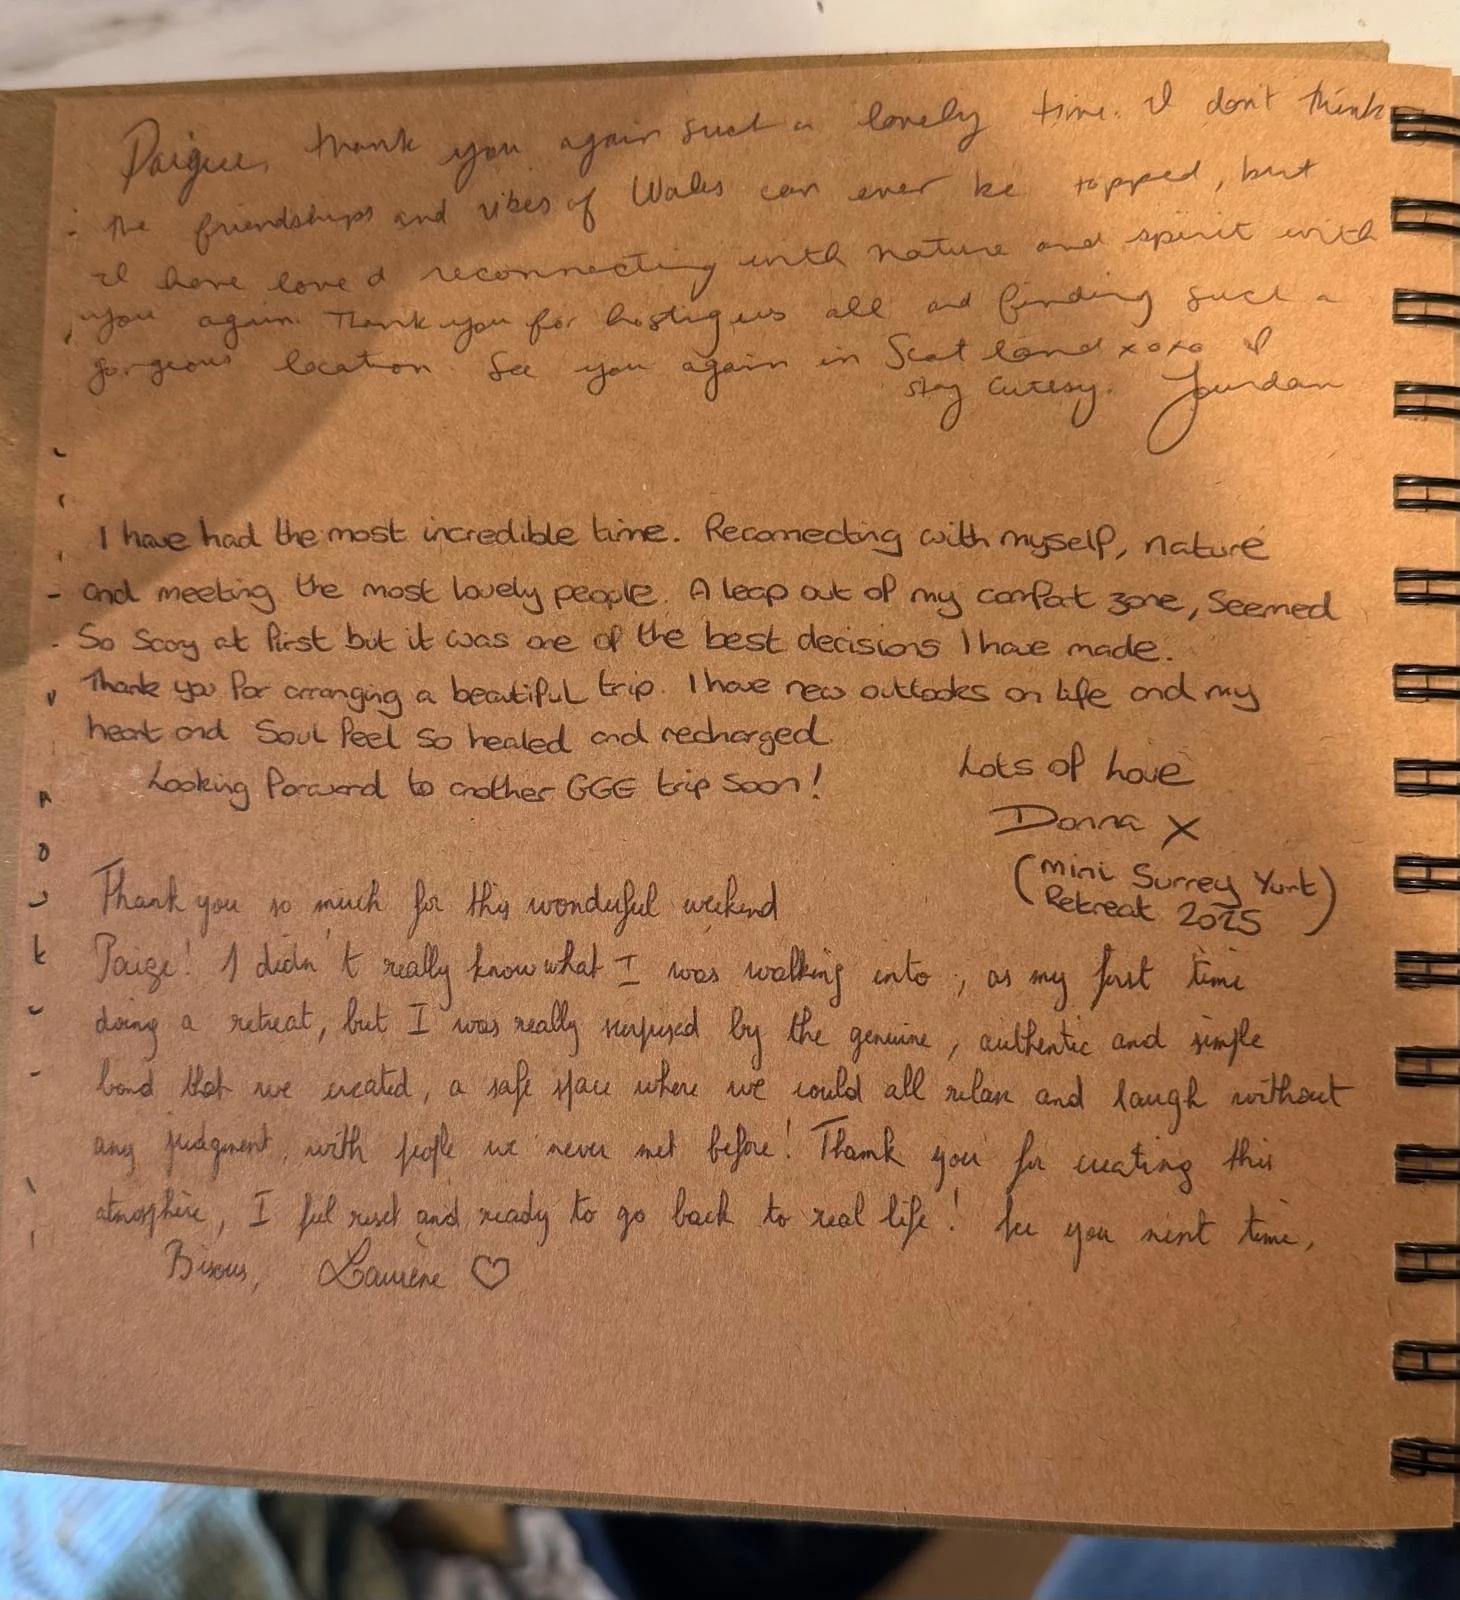 Paigee, thank you again such a lovely time. I don't think
the friendships and vibes of Wales can ever be topped, but
I have loved reconnecting with nature and spirit with
you again. Thank you for hosting us all and finding such a
gorgeous location. See you again in Scotland xoxo
stay cutesy. Jourdan
I have had the most incredible time. Reconnecting with myself, nature
and meeting the most lovely people. A leap out of my comfort zone, seemed
so scary at first but it was one of the best decisions I have made.
Thank you for arranging a beautiful trip. I have new outlooks on life and my
heart and soul feel so healed and recharged.
Looking forward to another GGE trip soon!
Lots of love
Donna X
(Mini Surrey Yurt
Retreat 2025)
Thank you so much for this wonderful weekend
Paige! I didn't really know what I was walking into, as my first time
doing a retreat, but I was really surprised by the genuine, authentic and simple
bond that we created, a safe space where we could all relax and laugh without
any judgment, with people we never met before! Thank you for creating this
atmosphere, I feel reset and ready to go back to real life! See you next time,
Bisous, Laurène ♡